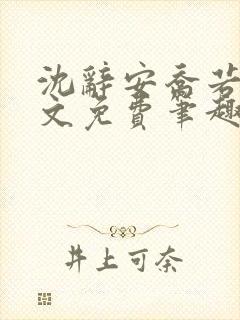 沈辞安乔若
文免费笔趣
井上可奈